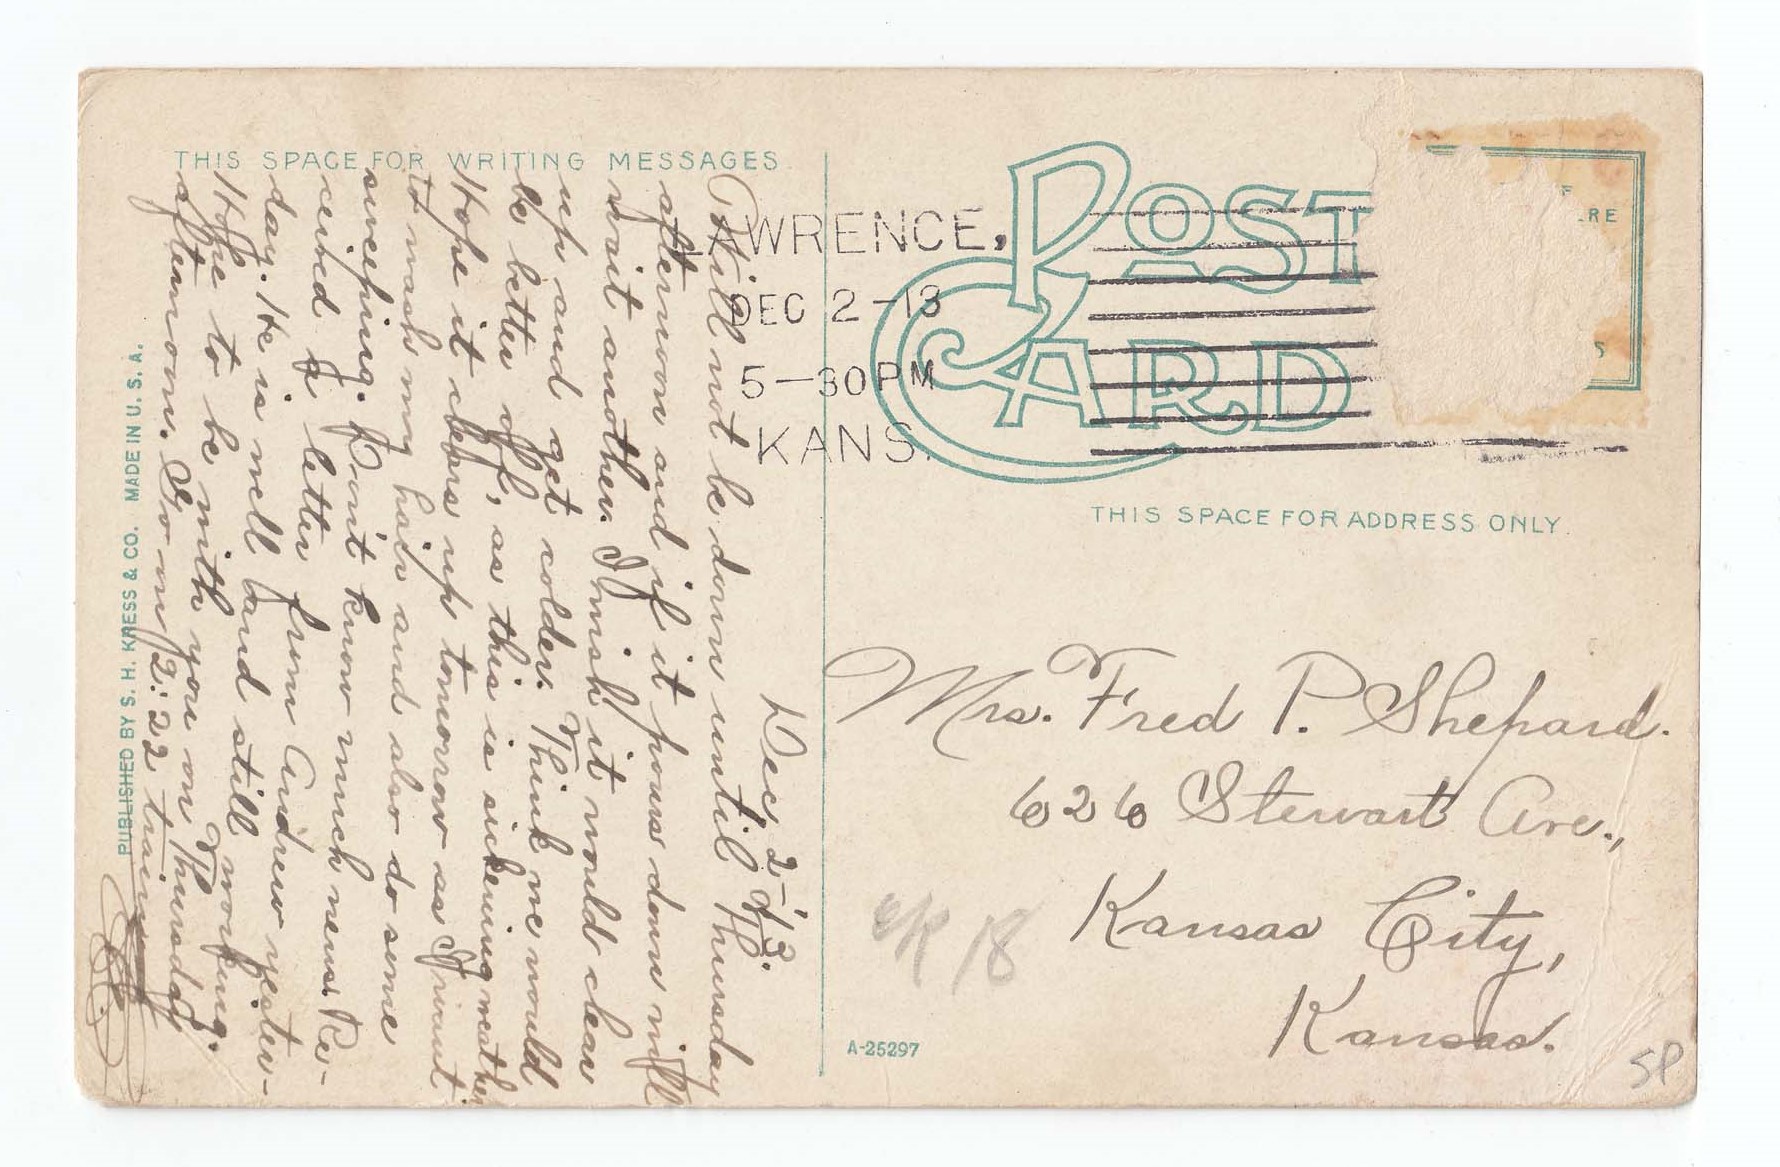 THIS SPACE FOR WRITING MESSAGES
Dec 2-'13.
Will not be down until Thursday
afternoon and if it pours down will
wait another. I wish it would clear
up and get colder. Think we would
be better off, as this is sickening weather
Hope it clears up tomorrow as I want
to wash my hair and also do some
sweeping. Don't know much news. Re-
ceived a letter from Andrew yester-
day. He is well and still working.
Hope to be with you on Thursday
afternoon. on 2:22 train
PUBLISHED BY S. H. KRESS & CO. MADE IN U. S. A.
AWRENCE,
DEC 2-13
5-30PM
KANS.
POST
CARD
RE
S
THIS SPACE FOR ADDRESS ONLY.
Mrs. Fred P. Shepard.
626 Stewart Ave.,
Kansas City,
Kansas.
A-25297
18
SP